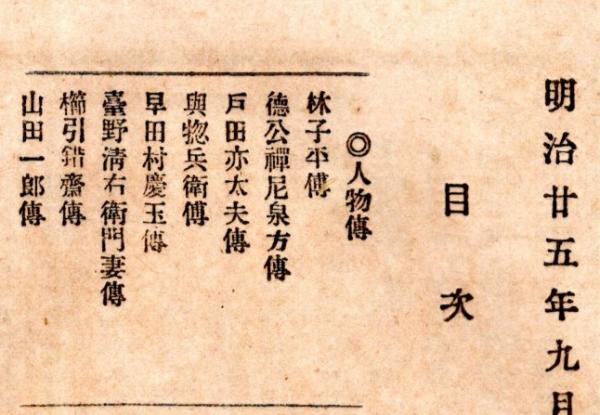 明治廿五年九月
目次
◎人物傳
林子平傳
德公禪尼泉方傳
戸田亦太夫傳
與惣兵衛傳
早田村慶玉傳
臺野淸右衛門妻傳
櫛引錯齋傳
山田一郎傳